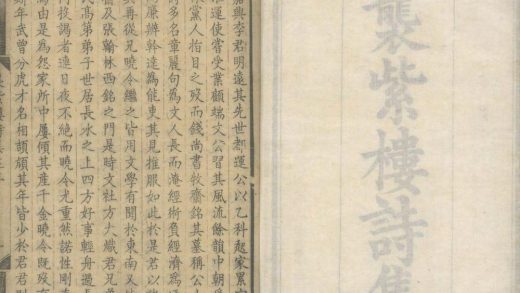 襲紫樓詩集
嘉興李君明遠其先世都運公以乙科起家累官
運使嘗受業顧端文公習其風流餘韻中朝
黨人指目之歿而錢尚書牧齋銘其墓稱公
得多名章麗句為文人長而淹經術負經濟為
廉辦幹達為能吏其見推服如此於是君以
其再從兄曉令繼之皆用文學有聞於東南又
及張翰林西銘之門是時文社方大熾君兄
氏高弟弟子世居長水之上四方好事輕舟過
投謁者連日夜不絕而曉令尤重然諾性剛
為由是為怨家所中屢傾其產千金曉令既歿
年武曾分虎才名相頡頏其年皆少於君君